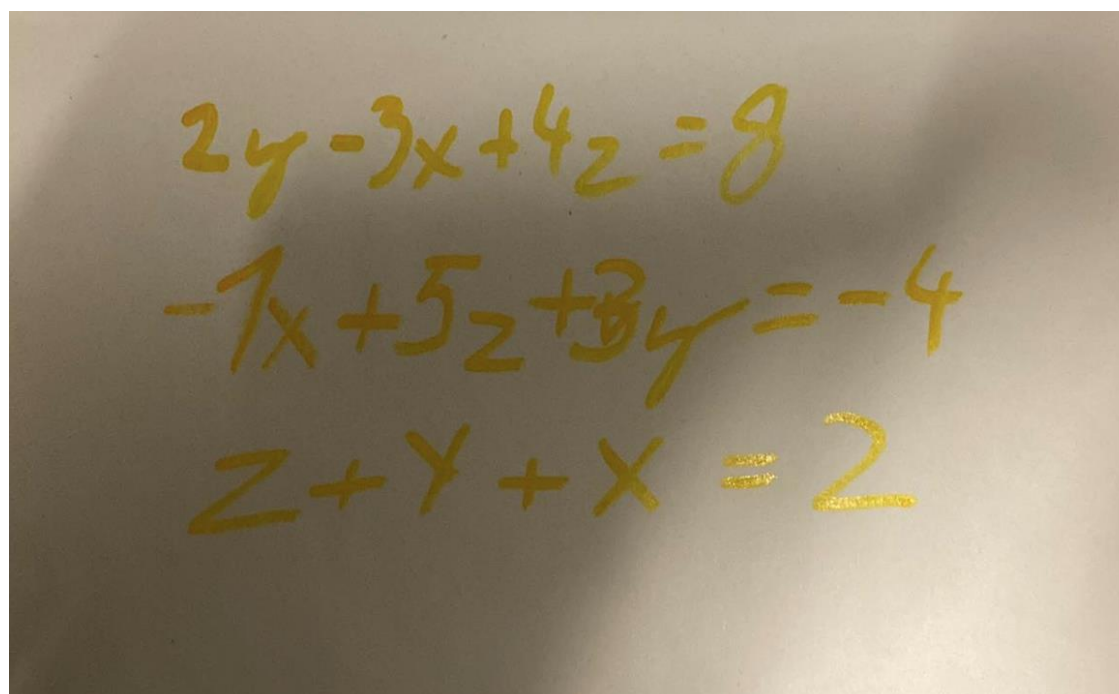 2y-3x+4z=8
-7x+5z+3y=-4
z+y+x=2